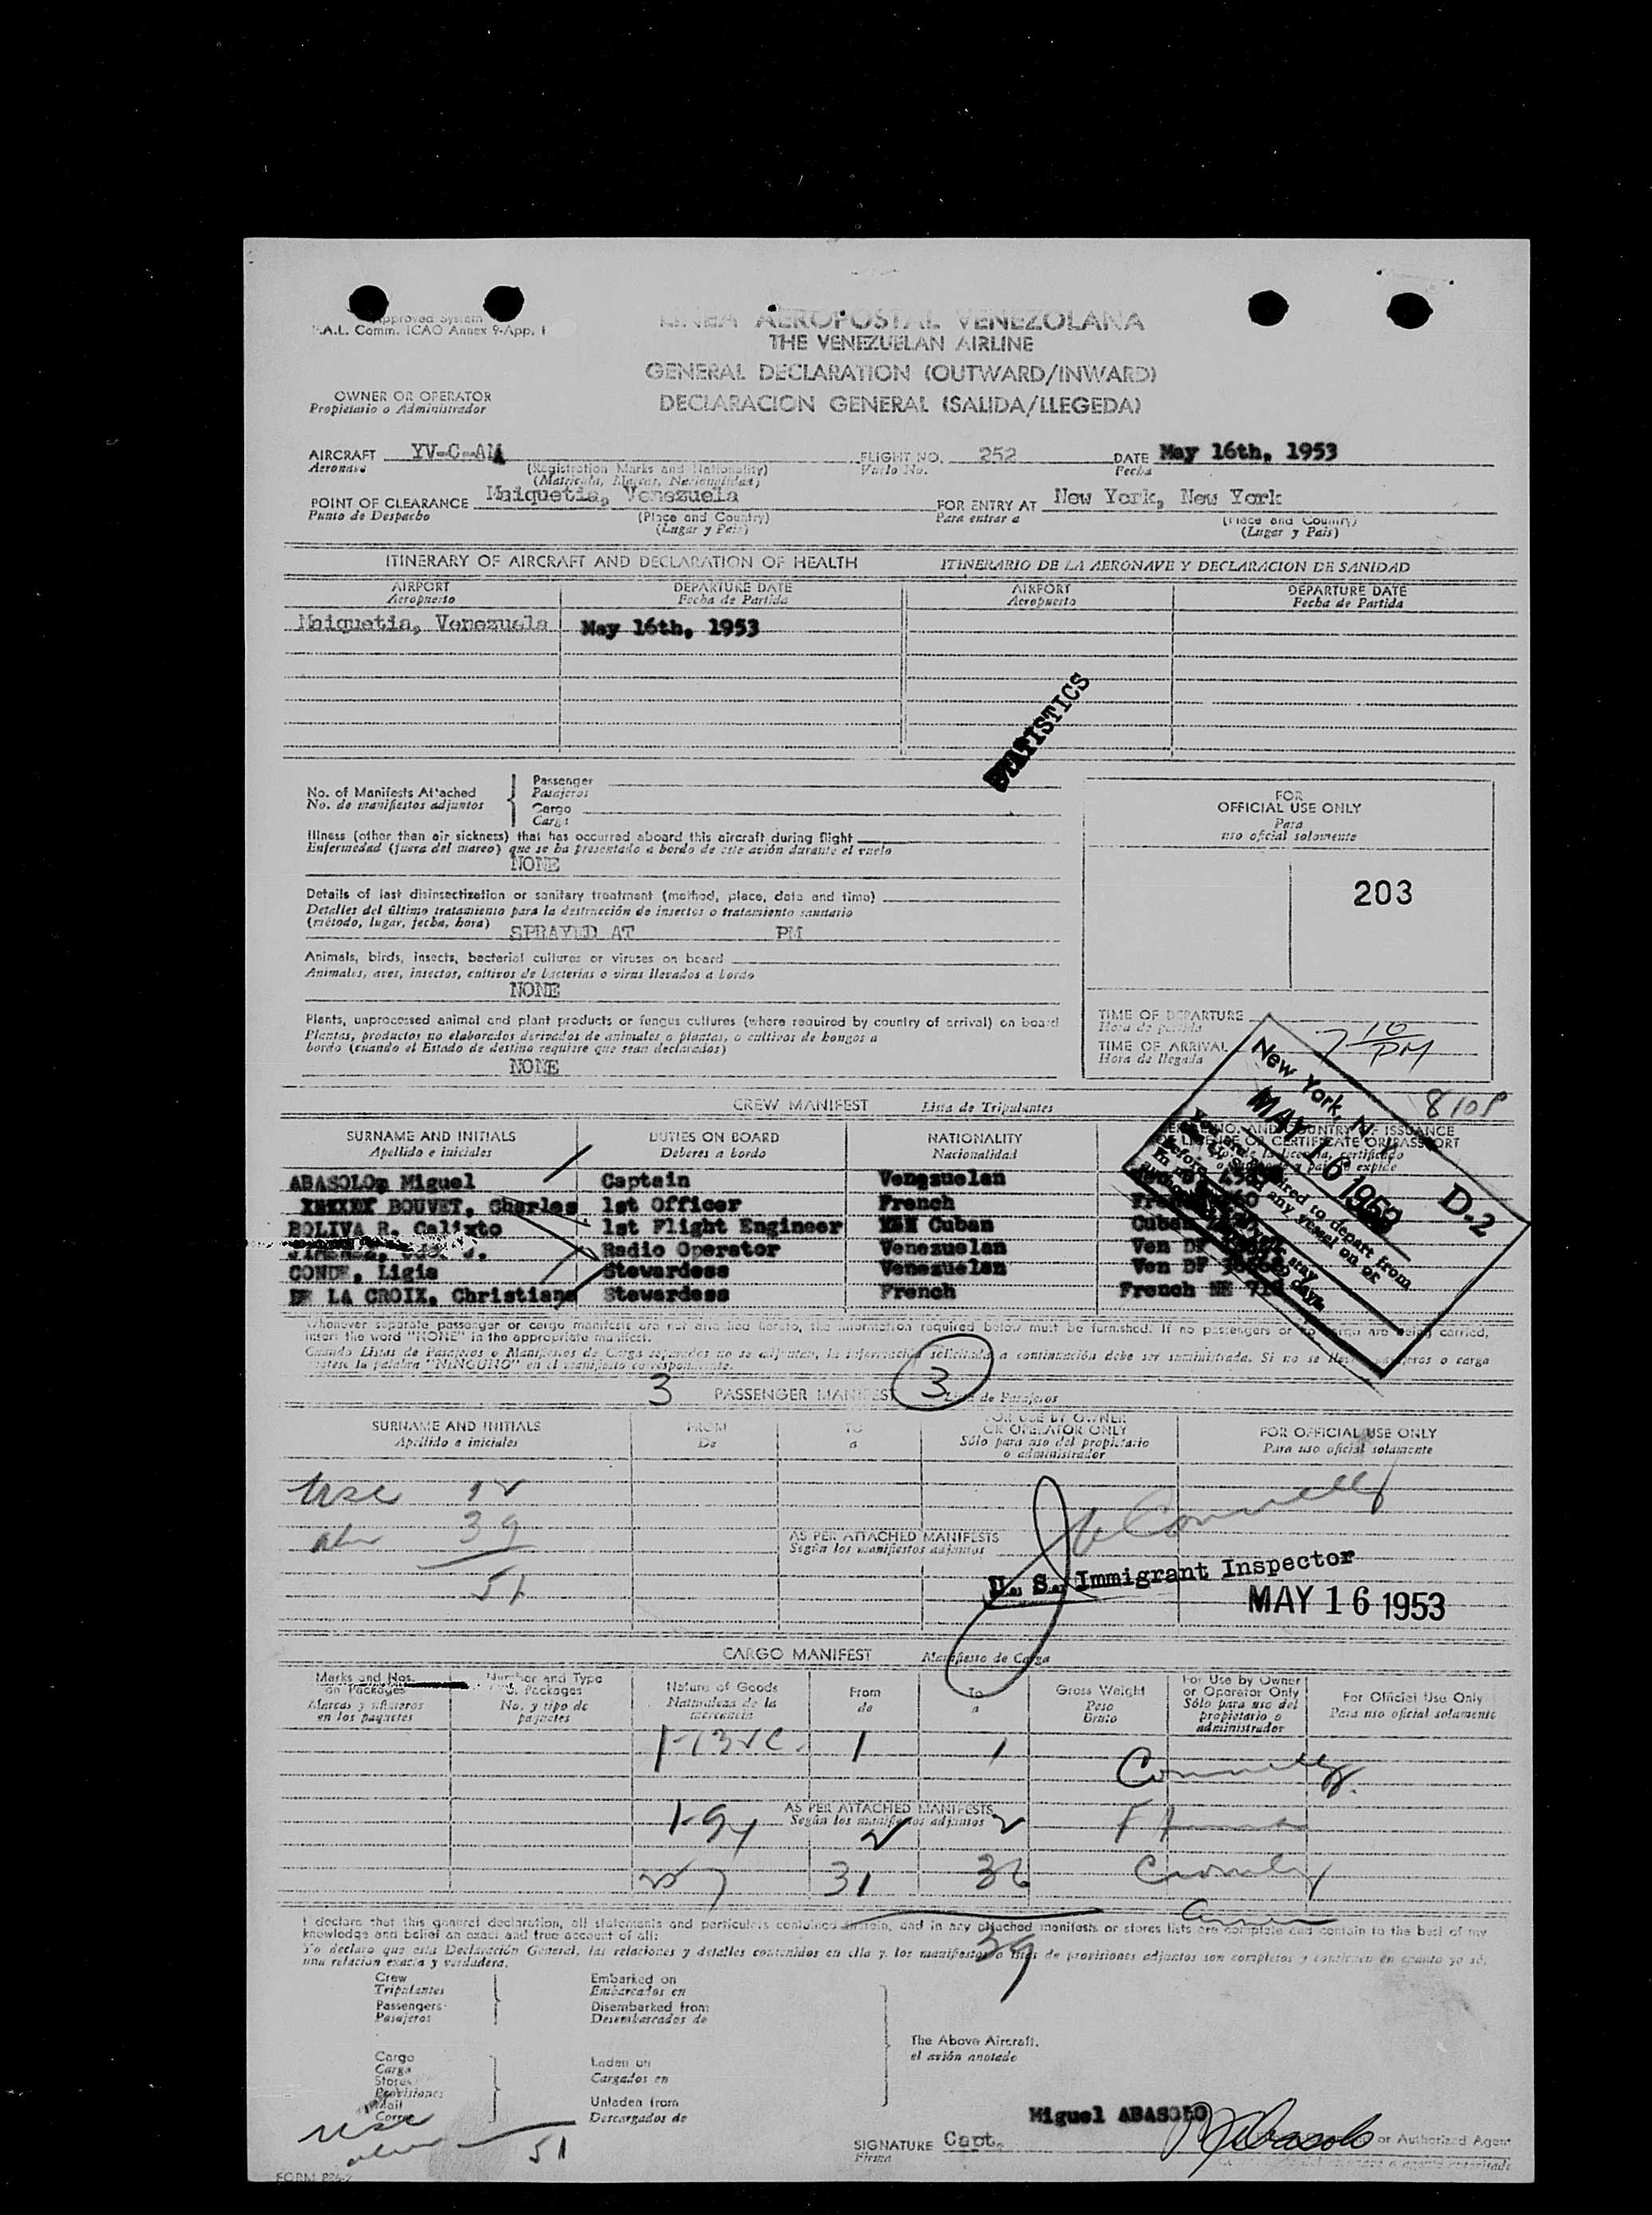 Approved System
F.A.L. Comm. ICAO Annex 9-App. 1
LINEA AEROPOSTAL VENEZOLANA
THE VENEZUELAN AIRLINE
GENERAL DECLARATION (OUTWARD/INWARD)
DECLARACION GENERAL (SALIDA/LLEGEDA)
OWNER OR OPERATOR
Propietario o Administrador
AIRCRAFT YV-C-AM FLIGHT NO. 252 DATE May 16th, 1953
Aeronave (Registration Marks and Nationality) Vuelo No. Fecha
(Matricula, Marcas, Nacionalidad)
POINT OF CLEARANCE Maiquetia, Venezuela FOR ENTRY AT New York, New York
Punto de Despacho (Place and Country) Para entrar a (Place and Country)
(Lugar y Pais) (Lugar y Pais)
ITINERARY OF AIRCRAFT AND DECLARATION OF HEALTH ITINERARIO DE LA AERONAVE Y DECLARACION DE SANIDAD
AIRPORT DEPARTURE DATE AIRPORT DEPARTURE DATE
Aeropuerto Fecha de Partida Aeropuerto Fecha de Partida
Maiquetia, Venezuela May 16th, 1953
STATISTICS
No. of Manifests Attached Passenger
No. de manifiestos adjuntos Pasajeros
Cargo
Carga
Illness (other than air sickness) that has occurred aboard this aircraft during flight
Enfermedad (fuera del mareo) que se ha presentado a bordo de este avión durante el vuelo
NONE
Details of last disinsectization or sanitary treatment (method, place, date and time)
Detalles del último tratamiento para la destrucción de insectos o tratamiento sanitario
(método, lugar, fecha, hora) SPRAYED AT PM
Animals, birds, insects, bacterial cultures or viruses on board
Animales, aves, insectos, cultivos de bacterias o virus llevados a bordo
NONE
Plants, unprocessed animal and plant products or fungus cultures (where required by country of arrival) on board
Plantas, productos no elaborados derivados de animales o plantas, o cultivos de hongos a
bordo (cuando el Estado de destino requiere que sean declarados)
NONE
FOR
OFFICIAL USE ONLY
Para
uso oficial solamente
203
TIME OF DEPARTURE
Hora de partida
TIME OF ARRIVAL 7 10 PM
Hora de llegada
New York, N. Y.
MAY 16 1953
D-2
CREW MANIFEST Lista de Tripulantes
SURNAME AND INITIALS DUTIES ON BOARD NATIONALITY
Apellido e iniciales Deberes a bordo Nacionalidad
ABASOLO, Miguel Captain Venezuelan
BOUVET, Charles 1st Officer French
BOLIVA R. Calixto 1st Flight Engineer Cuban
Radio Operator Venezuelan Ven DF
CONDE, Ligia Stewardess Venezuelan Ven DF
DE LA CROIX, Christiane Stewardess French French
Whenever separate passenger or cargo manifests are not attached hereto, the information required below must be furnished. If no passengers or no cargo are being carried,
insert the word "NONE" in the appropriate manifest.
Cuando Listas de Pasajeros o Manifiestos de Carga separados no se adjuntan, la información solicitada a continuación debe ser suministrada. Si no se llevan pasajeros o carga
anótese la palabra "NINGUNO" en el manifiesto correspondiente.
3 PASSENGER MANIFEST 3 Lista de Pasajeros
SURNAME AND INITIALS FROM TO FOR USE BY OWNER OR OPERATOR ONLY FOR OFFICIAL USE ONLY
Apellido e iniciales De a Sólo para uso del propietario o administrador Para uso oficial solamente
usc 12
39
51
AS PER ATTACHED MANIFESTS
Según los manifiestos adjuntos
U. S. Immigrant Inspector
MAY 16 1953
CARGO MANIFEST Manifiesto de Carga
Marks and Nos. on Packages Number and Type of Packages Nature of Goods From To Gross Weight For Use by Owner or Operator Only For Official Use Only
Marcas y números en los paquetes No. y tipo de paquetes Naturaleza de la mercancia de a Peso Bruto Sólo para uso del propietario o administrador Para uso oficial solamente
1 1 Connelly
AS PER ATTACHED MANIFESTS
Según los manifiestos adjuntos
1-94 2 2
31 36
39
I declare that this general declaration, all statements and particulars contained therein, and in any attached manifests or stores lists are complete and contain to the best of my
knowledge and belief an exact and true account of all:
Yo declaro que esta Declaración General, las relaciones y detalles contenidos en ella y los manifiestos o listas de provisiones adjuntos son completos y contienen en cuanto yo sé,
una relacion exacta y verdadera.
Crew Embarked on
Tripulantes Embarcados en
Passengers Disembarked from
Pasajeros Desembarcados de
The Above Aircraft.
el avión anotado
Cargo Laden on
Carga Cargados en
Stores
Provisiones
Mail Unladen from
Correo Descargados de
usc
51
Miguel ABASOLO
SIGNATURE Capt. M Abasolo or Authorized Agent
Firma
FORM 886-2